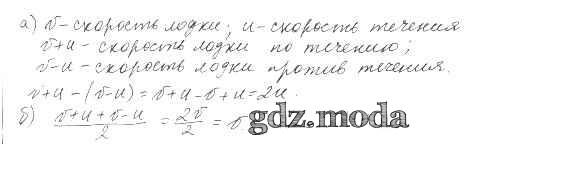 а) v-скорость лодки; u-скорость течения
v+u - скорость лодки по течению;
v-u - скорость лодки против течения.
v+u-(v-u)=v+u-v+u=2u.
б) (v+u+v-u)/2 = 2v/2 = v
gdz.moda